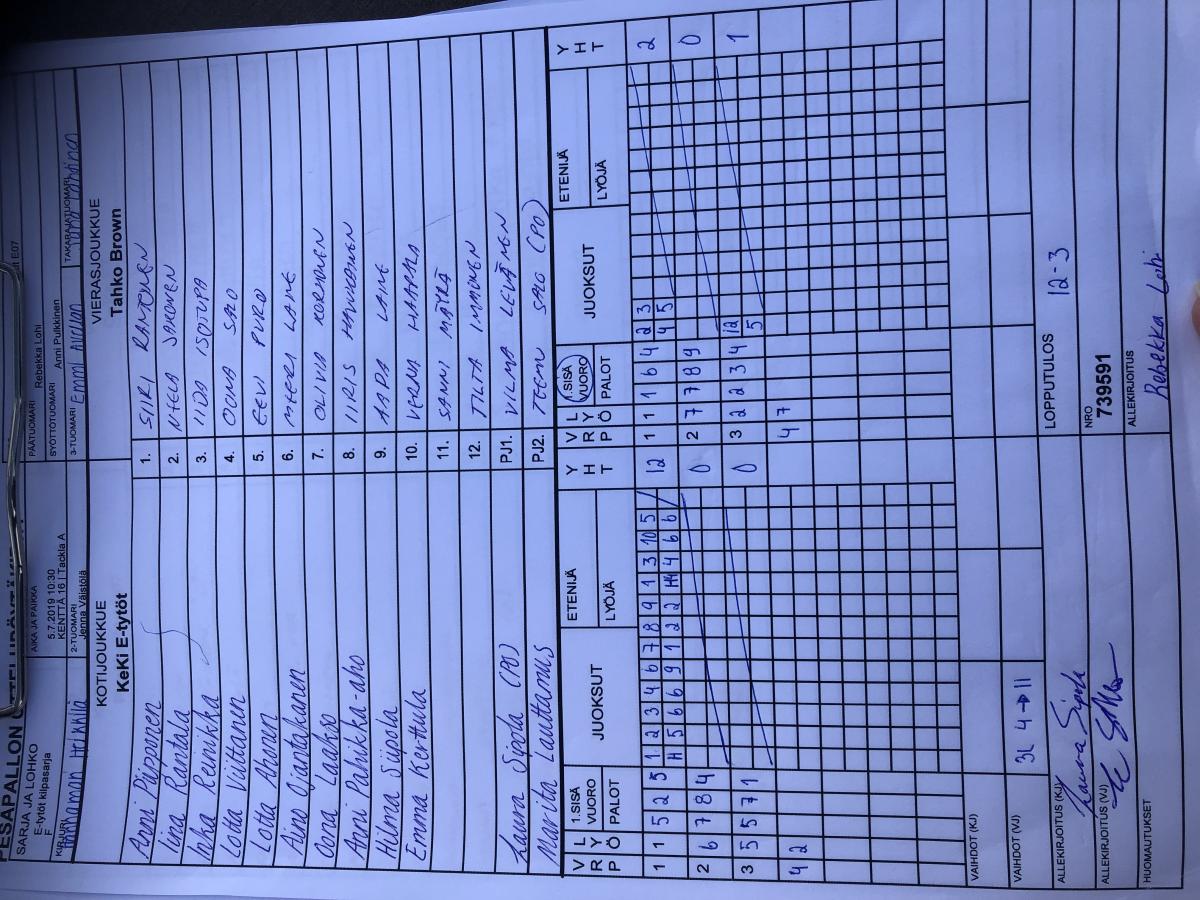 SARJA JA LOHKO
E-tytöt kilpasarja
F
AIKA JA PAIKKA
5.7.2019 10:30
KENTTÄ 16 | Tackla A
PÄÄTUOMARI Rebekka Lohi
SYÖTTÖTUOMARI Anni Pulkkinen
KIRJURI
2-TUOMARI Jenna Väistölä
3-TUOMARI Emmi
TAKARAJATUOMARI
KOTIJOUKKUE
KeKi E-tytöt
VIERASJOUKKUE
Tahko Brown
Anni Piipponen 1. SIIRI RANTONEN
Iina Rantala 2. NEEA
Inka Reinikka 3. IIDA ISOTUPA
Lotta Viittanen 4. OONA SALO
Lotta Ahonen 5. EEVI PURO
Aino Ojantakanen 6. MEERI LAINE
Oona Laakso 7. OLIVIA KORHONEN
Anni Pahikka-aho 8. IIRIS
Hilma Siipola 9. AADA LAINE
Emma Kerttula 10. VERNA
11. SANNI MÄYRÄ
12. TILTA IMMONEN
Laura Sigoda (PO) PJ1. VILMA LEVÄNEN
Marita Lauttamus PJ2. TEEMU SALO (PO)
V R P L Y Ö 1.SISÄ VUORO PALOT JUOKSUT ETENIJÄ LYÖJÄ Y H T V R P L Y Ö 1.SISÄ VUORO PALOT JUOKSUT ETENIJÄ LYÖJÄ Y H T
1 1 5 2 5 1 2 3 4 6 7 8 9 1 3 10 5 12 1 1 1 6 4 2 3 2
H 5 6 6 9 1 2 2 H4 4 6 6 4 5
2 6 7 8 4 0 2 7 7 8 9 0
3 5 5 7 1 0 3 2 2 3 4 12 1
5
4 2 4 7
VAIHDOT (KJ)
VAIHDOT (VJ) 3L 4→11
ALLEKIRJOITUS (KJ) LOPPUTULOS 12-3
ALLEKIRJOITUS (VJ) NRO 739591
HUOMAUTUKSET ALLEKIRJOITUS Rebekka Lohi